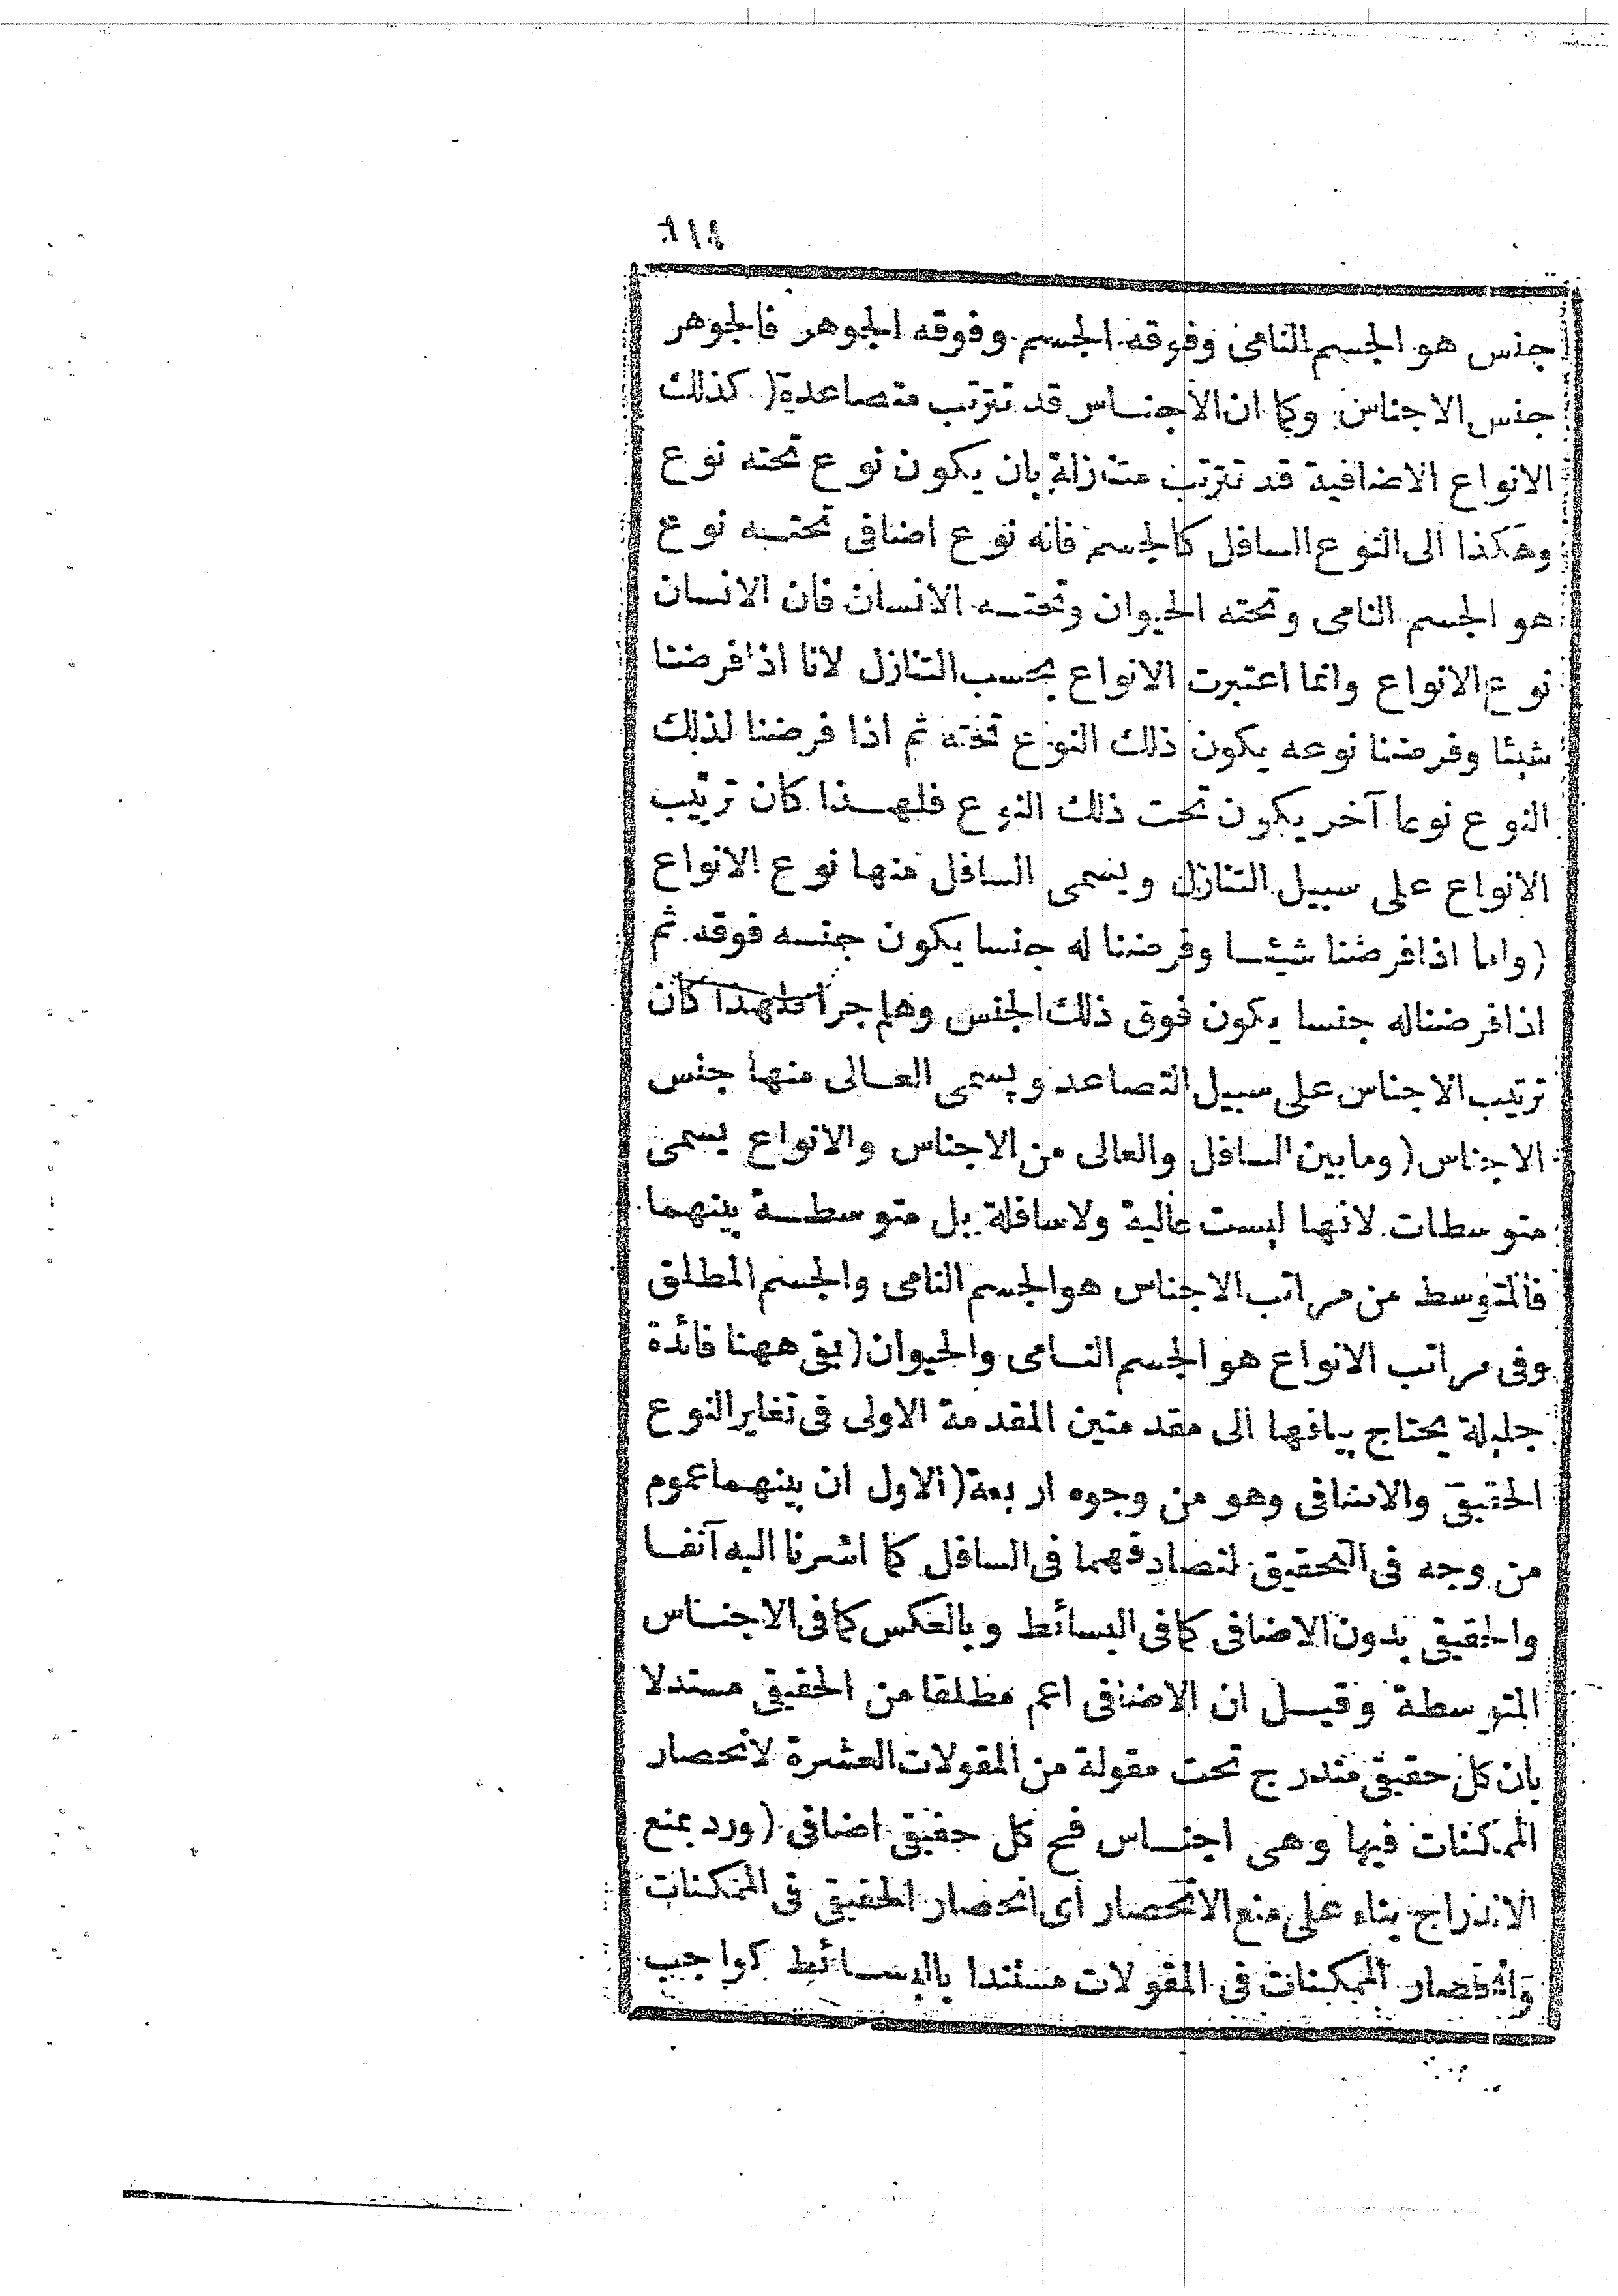 جنس هو الجسم النامى وفوقه الجسم وفوقه الجوهر فالجوهر
جنس الاجناس وكما ان الاجناس قد تترتب متصاعدة ( كذلك
الانواع الاضافية قد تترتب متنازلة بان يكون نوع تحته نوع
وهكذا الى النوع السافل كالجسم فانه نوع اضافى تحته نوع
هو الجسم النامى وتحته الحيوان وتحته الانسان فان الانسان
نوع الانواع وانما اعتبرت الانواع بحسب التنازل لانا اذا فرضنا
شيئا وفرضنا نوعه يكون ذلك النوع تحته ثم اذا فرضنا لذلك
النوع نوعا آخر يكون تحت ذلك النوع فلهذا كان ترتيب
الانواع على سبيل التنازل ويسمى السافل منها نوع الانواع
( واما اذا فرضنا شيئا وفرضنا له جنسا يكون جنسه فوقه ثم
اذا فرضنا له جنسا يكون فوق ذلك الجنس وهلم جرا فلهذا كان
ترتيب الاجناس على سبيل التصاعد ويسمى العالى منها جنس
الاجناس ( وما بين السافل والعالى من الاجناس والانواع يسمى
متوسطات لانها ليست عالية ولا سافلة بل متوسطة بينهما
فالمتوسط من مراتب الاجناس هو الجسم النامى والجسم المطلق
وفى مراتب الانواع هو الجسم النامى والحيوان ( بقى ههنا فائدة
جليلة يحتاج بيانها الى مقدمتين المقدمة الاولى فى تغاير النوع
الحقيقى والاضافى وهو من وجوه اربعة ( الاول ان بينهما عموم
من وجه فى التحقيق لتصادقهما فى السافل كما اشرنا اليه آنفا
والحقيقى بدون الاضافى كما فى البسائط وبالعكس كما فى الاجناس
المتوسطة وقيل ان الاضافى اعم مطلقا من الحقيقى مستدلا
بان كل حقيقى مندرج تحت مقولة من المقولات العشرة لانحصار
الممكنات فيها وهى اجناس فح كل حقيقى اضافى ( ورد بمنع
الاندراج بناء على منع الانحصار اى انحصار الحقيقى فى الممكنات
وانحصار الممكنات فى المقولات مستندا بالبسائط كواجب